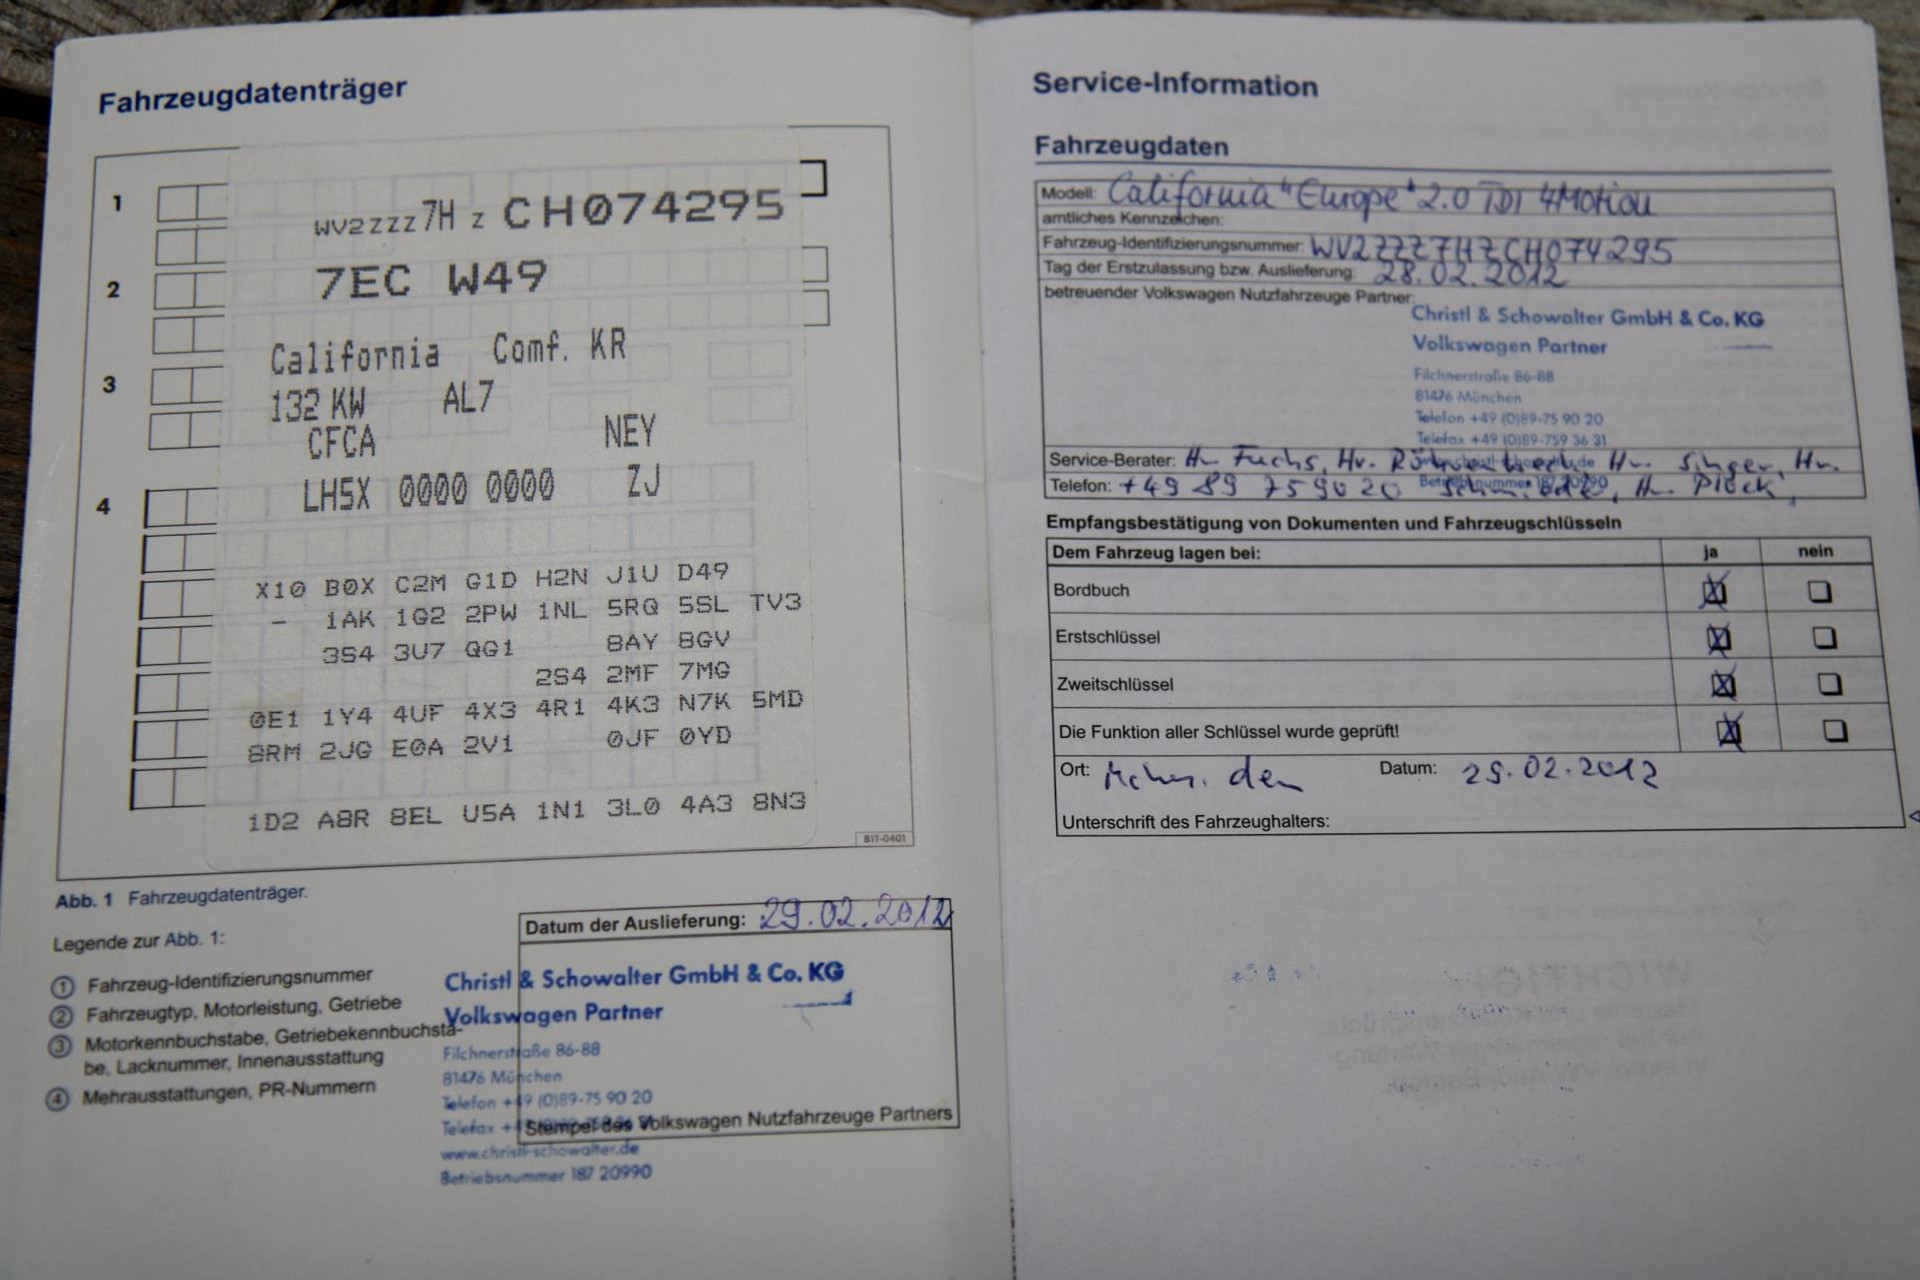 Fahrzeugdatenträger
1
WV2ZZZ7H Z CH074295
2
7EC W49
California Comf. KR
3
132 KW AL7
CFCA NEY
4
LH5X 0000 0000 ZJ
X10 B0X C2M G1D H2N J1U D49
- 1AK 1G2 2PW 1NL 5RQ 5SL TV3
3S4 3U7 QG1 8AY 8GV
2S4 2MF 7MG
0E1 1Y4 4UF 4X3 4R1 4K3 N7K 5MD
8RM 2JG E0A 2V1 0JF 0YD
1D2 A8R 8EL U5A 1N1 3L0 4A3 8N3
B1T-0401
Abb. 1 Fahrzeugdatenträger.
Legende zur Abb. 1:
1 Fahrzeug-Identifizierungsnummer
2 Fahrzeugtyp, Motorleistung, Getriebe
3 Motorkennbuchstabe, Getriebekennbuchsta-
be, Lacknummer, Innenausstattung
4 Mehrausstattungen, PR-Nummern
Datum der Auslieferung: 29.02.2012
Christl & Schowalter GmbH & Co. KG
Volkswagen Partner
Filchnerstraße 86-88
81476 München
Telefon +49 (0)89-75 90 20
Telefax
Stempel des Volkswagen Nutzfahrzeuge Partners
www.christl-schowalter.de
Betriebsnummer 187 20990
Service-Information
Fahrzeugdaten
Modell: California "Europe" 2.0 TDI 4Motion
amtliches Kennzeichen:
Fahrzeug-Identifizierungsnummer: WV2ZZZ7HZCH074295
Tag der Erstzulassung bzw. Auslieferung: 28.02.2012
betreuender Volkswagen Nutzfahrzeuge Partner:
Christl & Schowalter GmbH & Co. KG
Volkswagen Partner
Filchnerstraße 86-88
81476 München
Telefon +49 (0)89-75 90 20
Telefax +49 (0)89-759 36 31
Service-Berater: Hr. Fuchs, Hr. Hr. Singer, Hr.
Telefon: +49 89 759020 Hr. Plock
Betriebsnummer 187 20990
Empfangsbestätigung von Dokumenten und Fahrzeugschlüsseln
Dem Fahrzeug lagen bei: ja nein
Bordbuch
Erstschlüssel
Zweitschlüssel
Die Funktion aller Schlüssel wurde geprüft!
Ort: den Datum: 29.02.2012
Unterschrift des Fahrzeughalters: